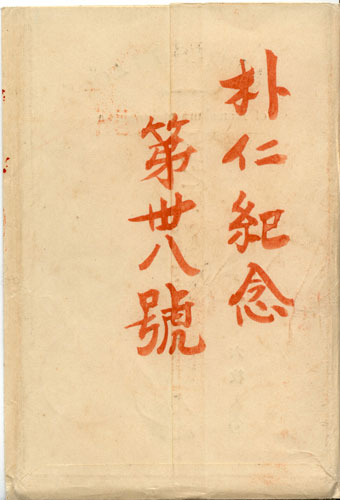 朴仁紀念
第卅八號